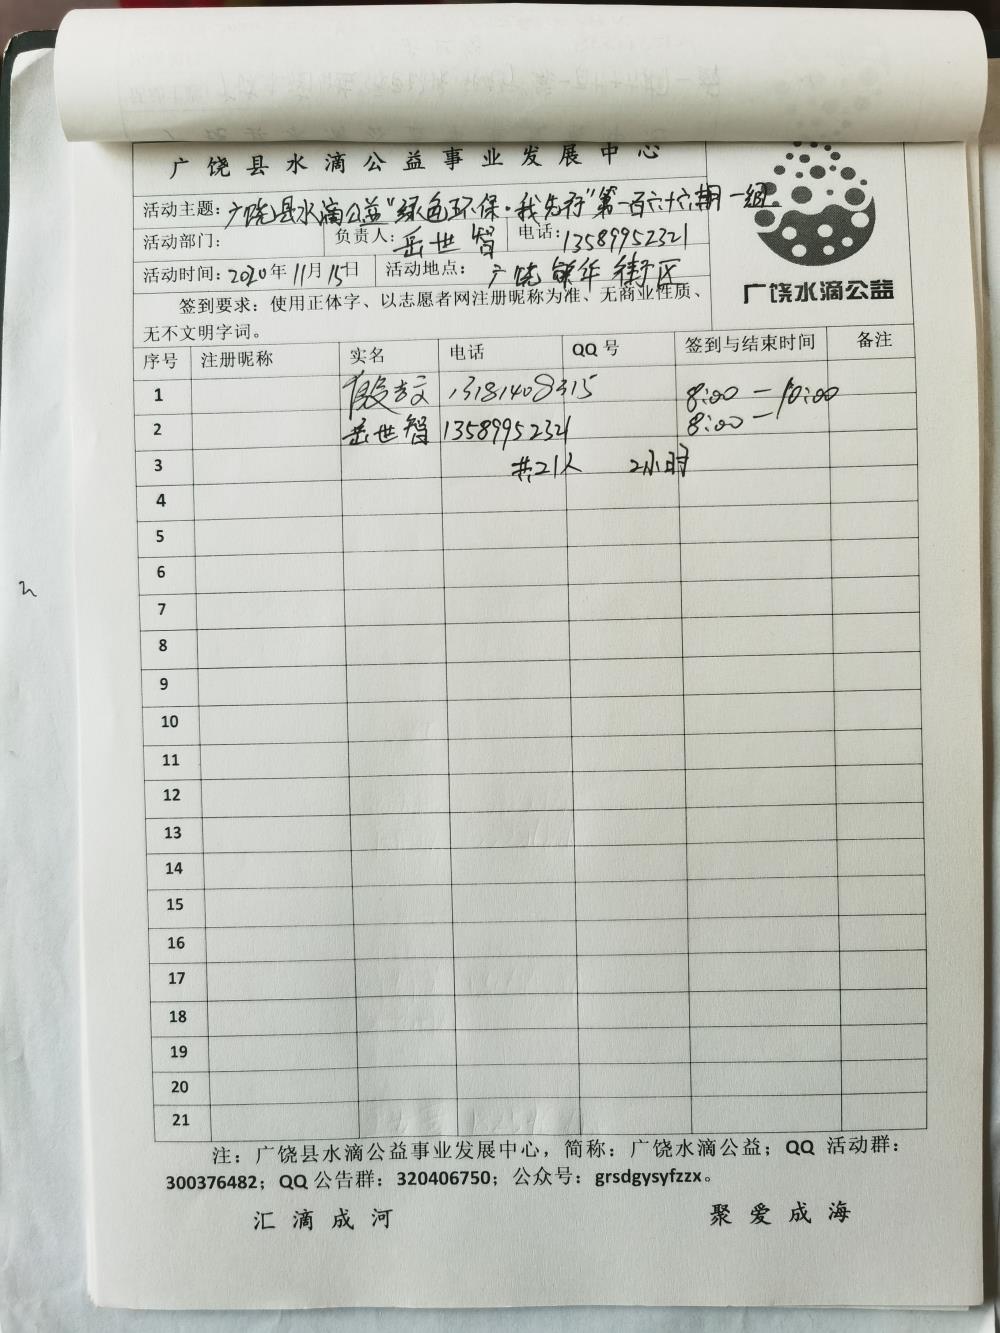 广饶县水滴公益事业发展中心
活动主题：广饶县水滴公益"绿色环保·我先行"第一百六十六期一组
活动部门： 负责人：岳世智 电话：13589952321
活动时间：2020年11月15日 活动地点：广饶 街区
广饶水滴公益
签到要求：使用正体字、以志愿者网注册昵称为准、无商业性质、
无不文明字词。
序号 注册昵称 实名 电话 QQ号 签到与结束时间 备注
1 13181408315 8:00—10:00
2 岳世智 13589952321 8:00—
3 共21人 2小时
4
5
6
7
8
9
10
11
12
13
14
15
16
17
18
19
20
21
注：广饶县水滴公益事业发展中心，简称：广饶水滴公益；QQ 活动群：
300376482；QQ公告群：320406750；公众号：grsdgysyfzzx。
汇滴成河 聚爱成海